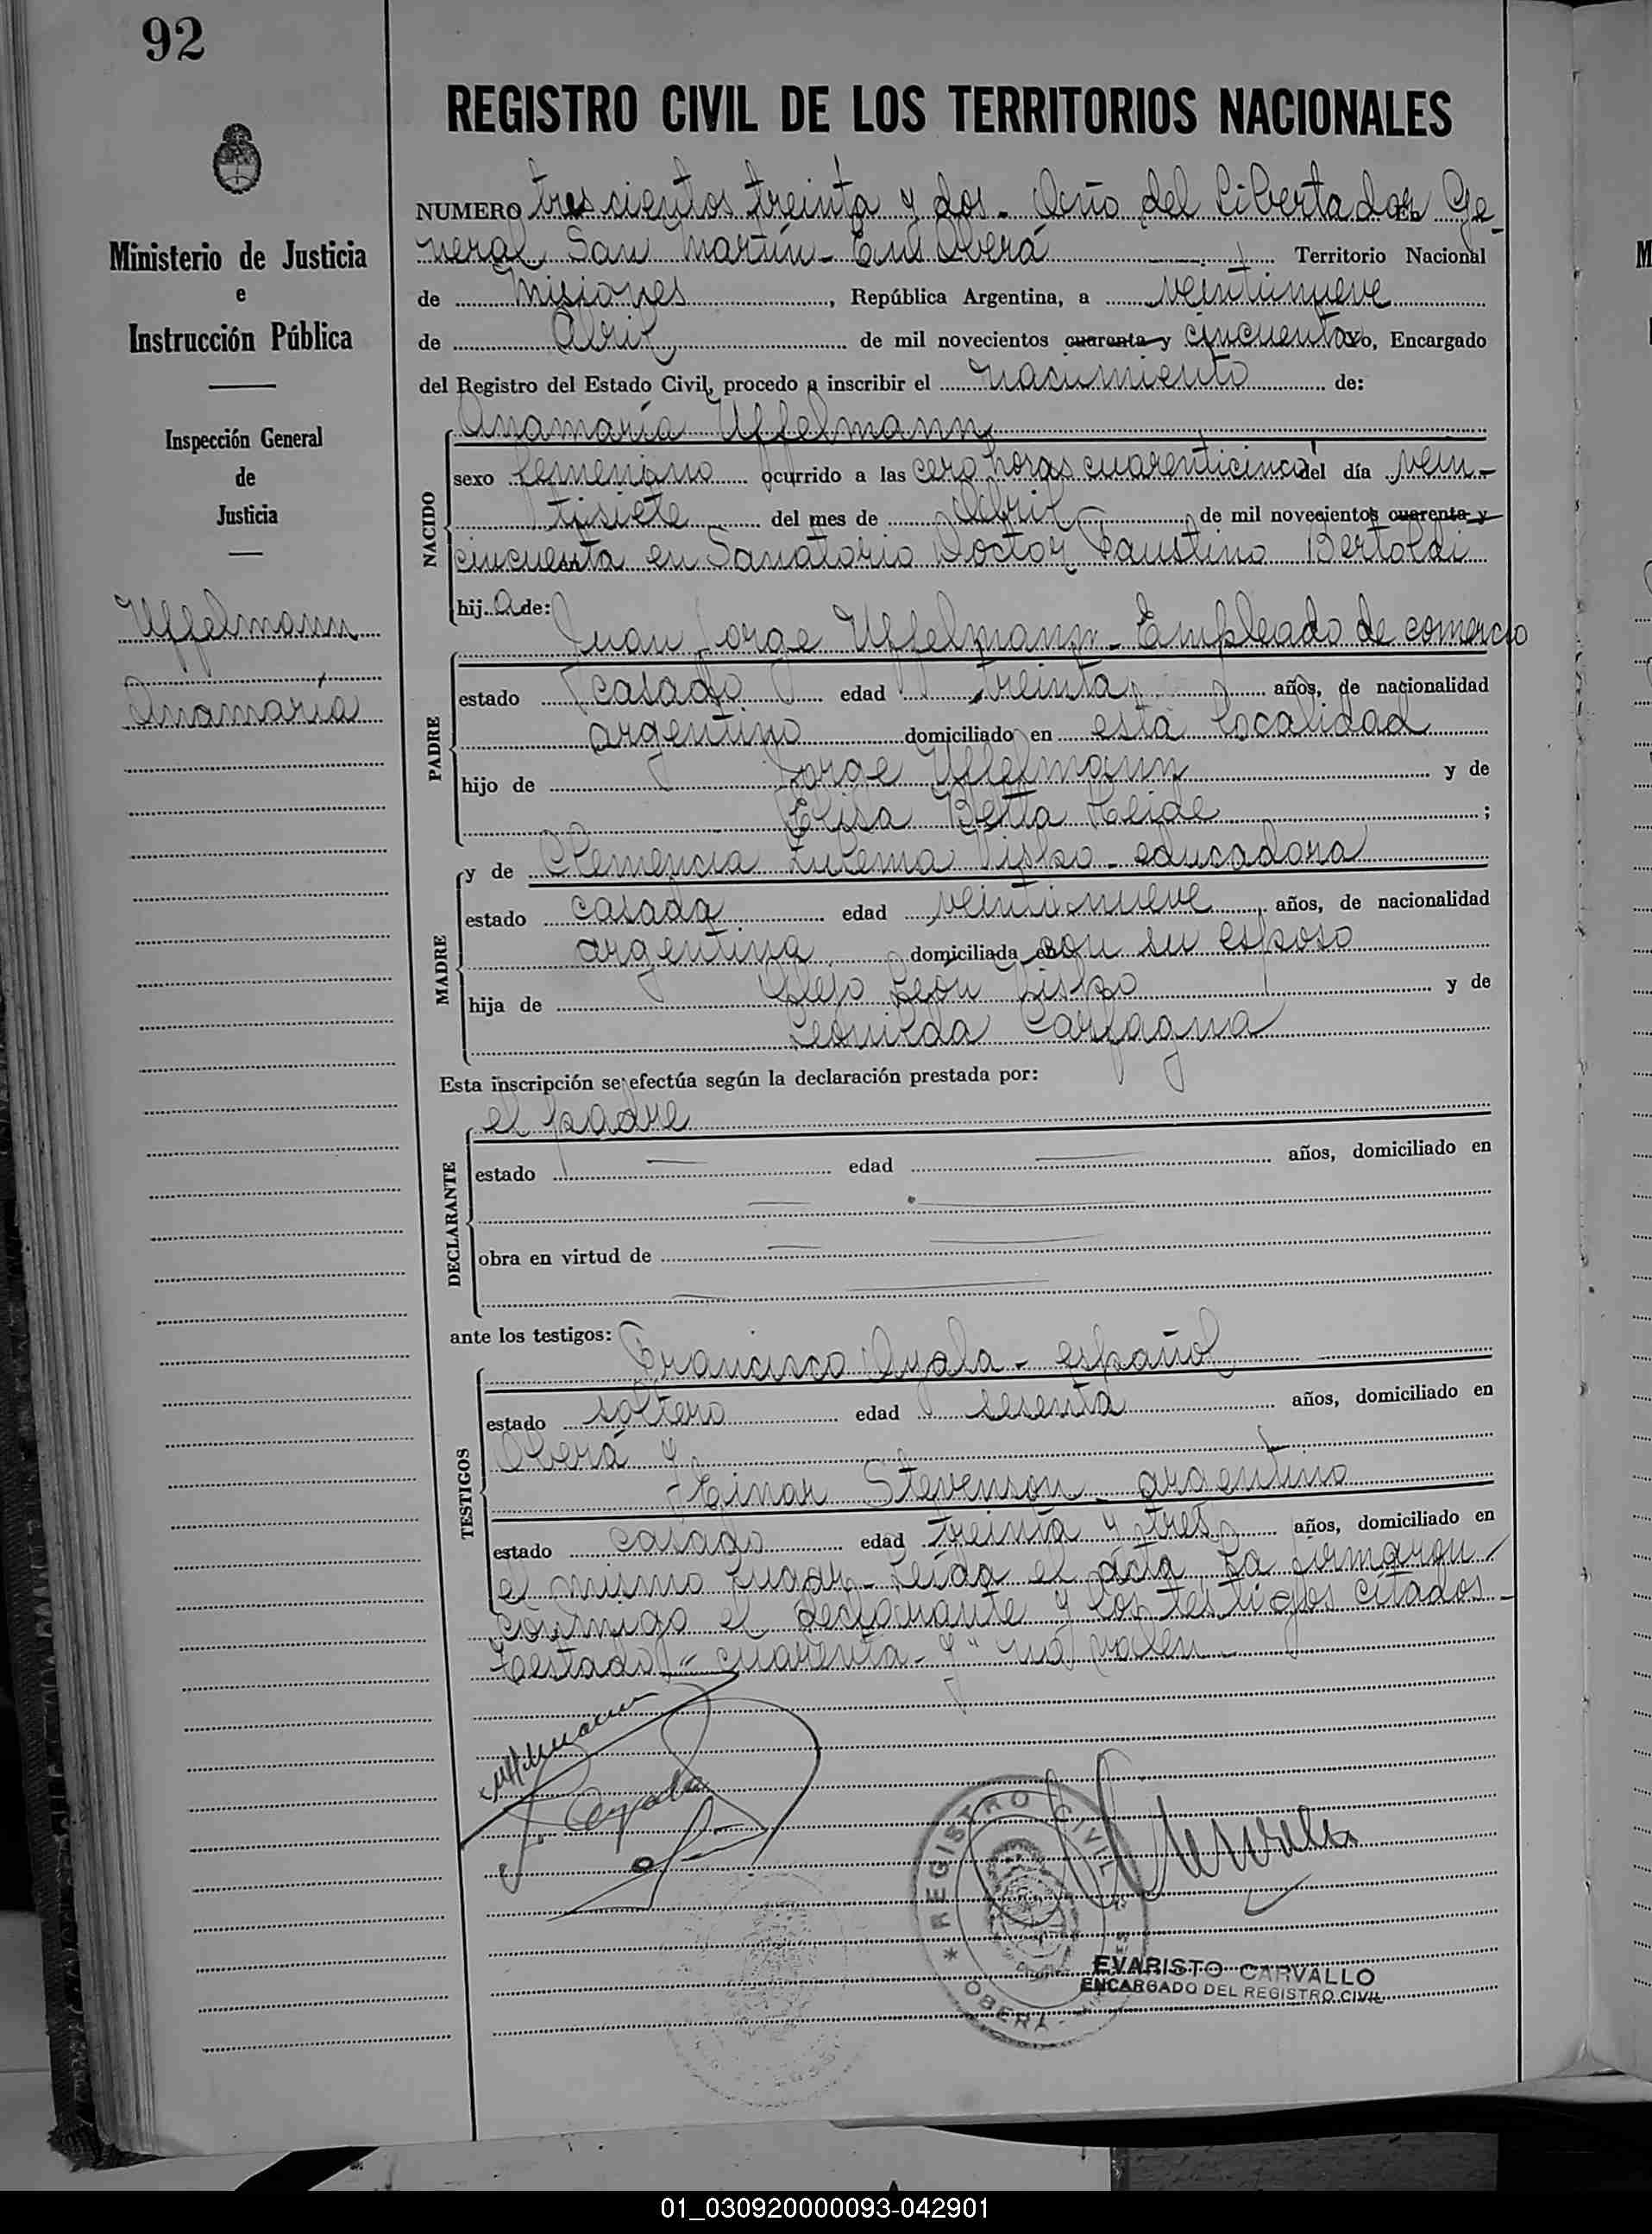 92
REGISTRO CIVIL DE LOS TERRITORIOS NACIONALES
Ministerio de Justicia
e
Instrucción Pública
Inspección General
de
Justicia
Uffelmann
Anamaría
NUMERO trescientos treinta y dos - Año del Libertador Ge-
neral San Martín - En Oberá Territorio Nacional
de Misiones, República Argentina, a veintinueve
de Abril de mil novecientos cuarenta y cincuenta Yo, Encargado
del Registro del Estado Civil, procedo a inscribir el nacimiento de:
Anamaría Uffelmann
NACIDO
sexo femenino ocurrido a las cero horas cuarenticinco del día vein-
tisiete del mes de Abril de mil novecientos cuarenta y
cincuenta en Sanatorio Doctor Faustino Bertoldi
hij a de:
Juan Jorge Uffelmann - Empleado de comercio
PADRE
estado casado edad treinta años, de nacionalidad
argentino domiciliado en esta localidad
hijo de Jorge Uffelmann y de
Elisa Betta Heide ;
MADRE
y de Clemencia Zulema Lispo - educadora
estado casada edad veintinueve años, de nacionalidad
argentina domiciliada con su esposo
hija de Alejo León Lispo y de
Leonilda Carfagna
Esta inscripción se efectúa según la declaración prestada por:
el padre
DECLARANTE
estado edad años, domiciliado en
obra en virtud de
ante los testigos:
Francisco Ayala - español
TESTIGOS
estado soltero edad sesenta años, domiciliado en
Oberá y
Einar Stevenson - argentino
estado casado edad treinta y tres años, domiciliado en
el mismo lugar - Leída el acta la firmaron
conmigo el declarante y los testigos citados -
Testado "cuarenta - y" no valen -
Uffelmann
F. Ayala
REGISTRO CIVIL
OBERÁ
EVARISTO CARVALLO
ENCARGADO DEL REGISTRO CIVIL
01_030920000093-042901